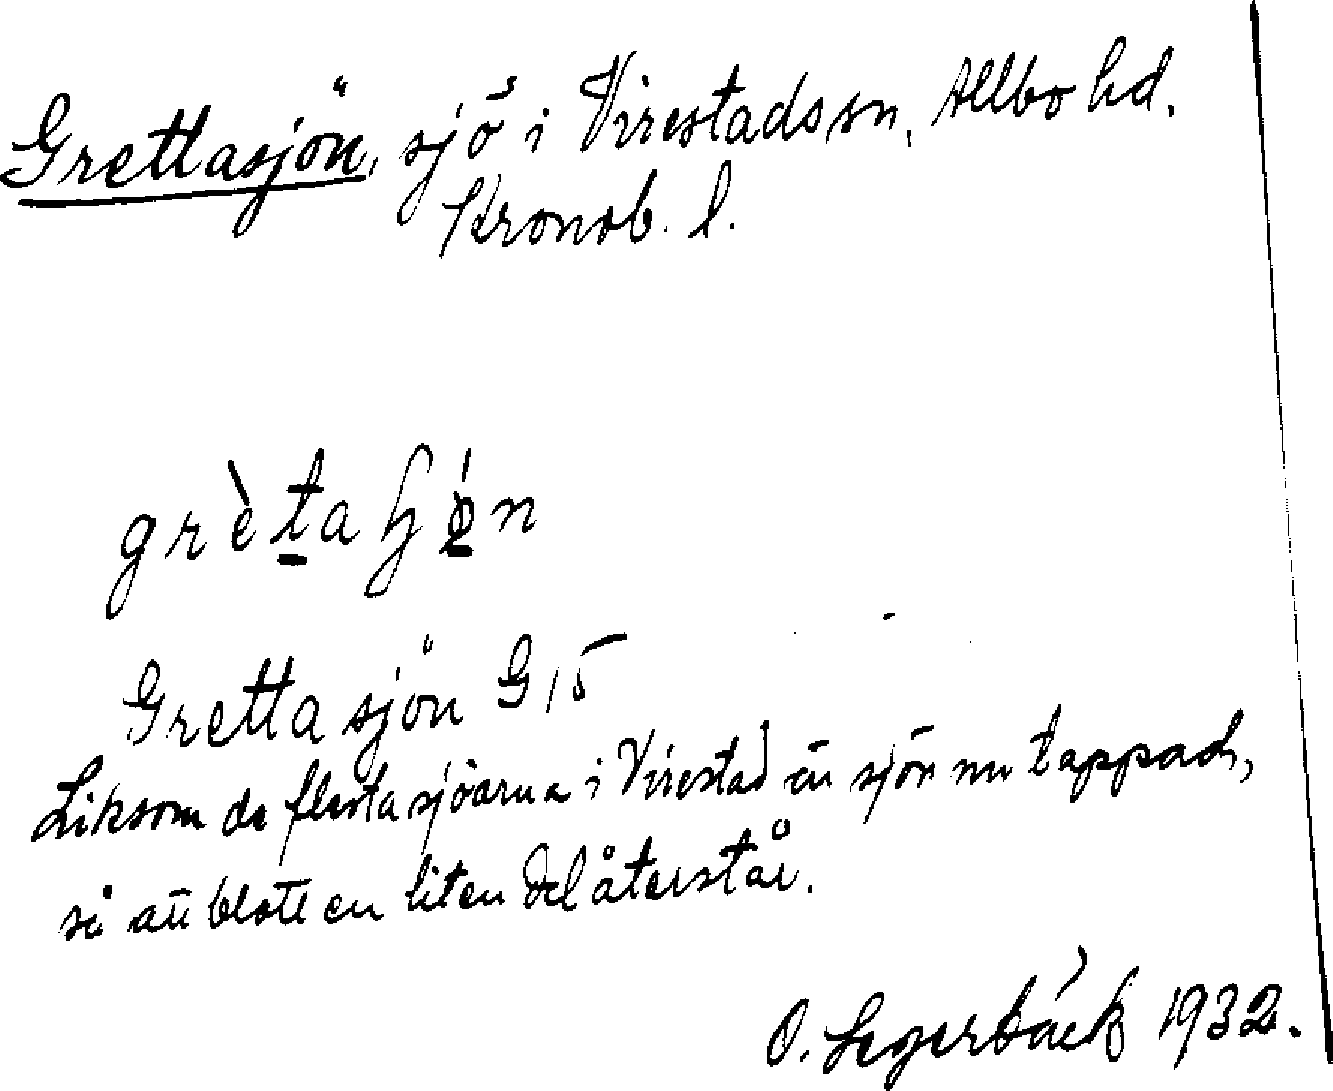 Grettasjön, sjö i Virestads sn, Allbo hd.
Kronob. l.
grètaɧǿn
Grettasjön G 15
Liksom de flesta sjöarna i Virestad är sjön nu tappad,
så att blott en liten del återstår.
O. Segerbäck 1932.